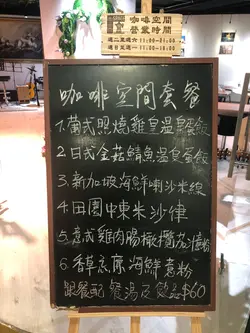 咖啡空間
營業時間
週二至週六 11:00-21:00
週日至週一 11:00-18:00
咖啡空間套餐
1.葡式照燒雞皇溫泉蛋飯
2.日式金菇鯖魚溫泉蛋飯
3.新加坡海鮮喇沙米線
4.田園中東米沙律
5.意式雞肉腸橄欖茄汁意粉
6.香草忌廉海鮮意粉
跟餐配 餐湯及飲品 $60